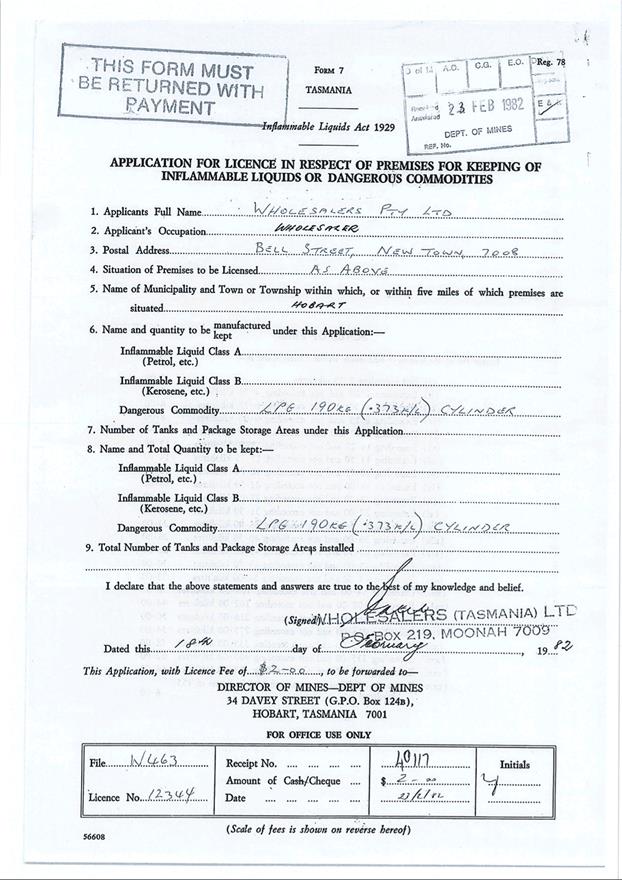 THIS FORM MUST
BE RETURNED WITH
PAYMENT
FORM 7
TASMANIA
Inflammable Liquids Act 1929
D of M A.O. C.G. E.O. Reg. 78
Received
23 FEB 1982
DEPT. OF MINES
REF. No.
APPLICATION FOR LICENCE IN RESPECT OF PREMISES FOR KEEPING OF
INFLAMMABLE LIQUIDS OR DANGEROUS COMMODITIES
1. Applicants Full Name WHOLESALERS PTY LTD
2. Applicant's Occupation WHOLESALER
3. Postal Address BELL STREET, NEW TOWN, 7008
4. Situation of Premises to be Licensed AS ABOVE
5. Name of Municipality and Town or Township within which, or within five miles of which premises are
situated HOBART
6. Name and quantity to be manufactured kept under this Application:—
Inflammable Liquid Class A
(Petrol, etc.)
Inflammable Liquid Class B
(Kerosene, etc.)
Dangerous Commodity LPG 190KG (.373K/L) CYLINDER
7. Number of Tanks and Package Storage Areas under this Application
8. Name and Total Quantity to be kept:—
Inflammable Liquid Class A
(Petrol, etc.)
Inflammable Liquid Class B
(Kerosene, etc.)
Dangerous Commodity LPG 190KG (.373K/L) CYLINDER
9. Total Number of Tanks and Package Storage Areas installed
I declare that the above statements and answers are true to the best of my knowledge and belief.
(Signed) WHOLESALERS (TASMANIA) LTD
P.O. BOX 219, MOONAH 7009
Dated this 18th day of February, 1982
This Application, with Licence Fee of $2-00, to be forwarded to—
DIRECTOR OF MINES—DEPT OF MINES
34 DAVEY STREET (G.P.O. Box 124B),
HOBART, TASMANIA 7001
FOR OFFICE USE ONLY
File N463 Receipt No. 40117 Initials
Amount of Cash/Cheque $ 2-00
Licence No. 12344 Date 23/2/82
(Scale of fees is shown on reverse hereof)
56608